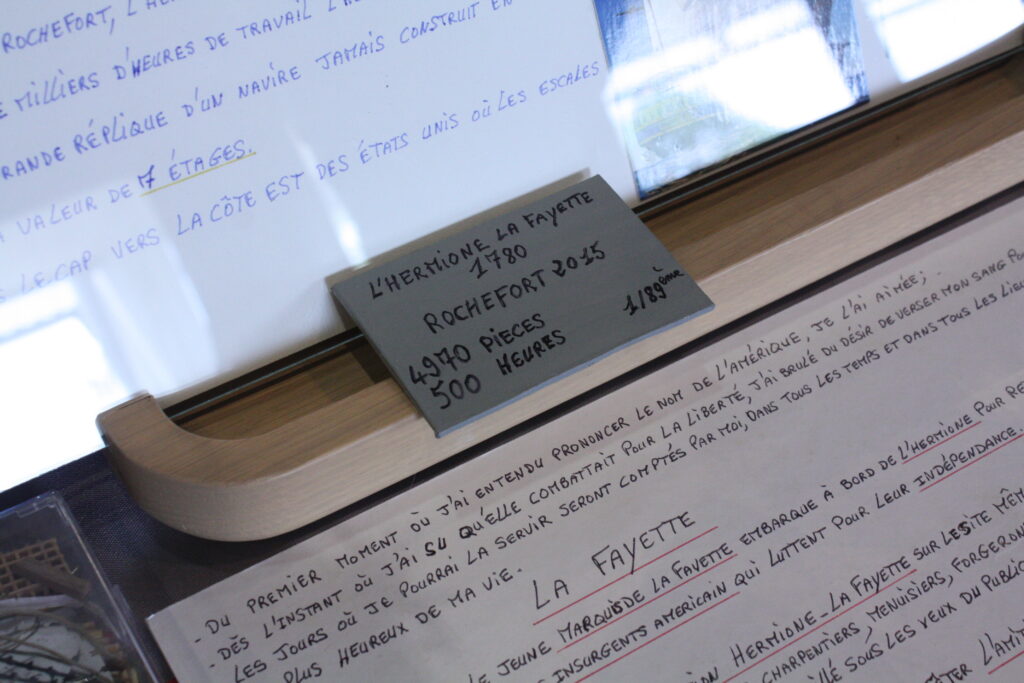 ROCHEFORT,
MILLIERS D'HEURES DE TRAVAIL
RANDE RÉPLIQUE D'UN NAVIRE JAMAIS CONSTRUIT EN
VALEUR DE 7 ÉTAGES.
LE CAP VERS LA CÔTE EST DES ÉTATS UNIS OÙ LES ESCALES
L'HERMIONE LA FAYETTE
1780
ROCHEFORT 2015
4970 PIECES 1/89ème
500 HEURES
- DU PREMIER MOMENT OÙ J'AI ENTENDU PRONONCER LE NOM DE L'AMÉRIQUE, JE L'AI AIMÉE;
- DÈS L'INSTANT OÙ J'AI SU QU'ELLE COMBATTAIT POUR LA LIBERTÉ, J'AI BRULÉ DU DÉSIR DE VERSER MON SANG
LES JOURS OÙ JE POURRAI LA SERVIR SERONT COMPTÉS PAR MOI, DANS TOUS LES TEMPS ET DANS TOUS LES
PLUS HEUREUX DE MA VIE.
LA FAYETTE
LE JEUNE MARQUIS DE LA FAYETTE EMBARQUE À BORD DE L'HERMIONE POUR
INSURGENTS AMERICAIN QUI LUTTENT POUR LEUR INDÉPENDANCE.
HERMIONE - LA FAYETTE SUR LE SITE
CHARPENTIERS, MENUISIERS,
SOUS LES YEUX DU PUBLIC